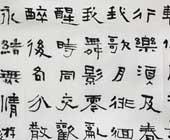 行樂須及春
我歌月徘徊
我舞影零亂
醒時同交歡
醉後各分散
永結無情